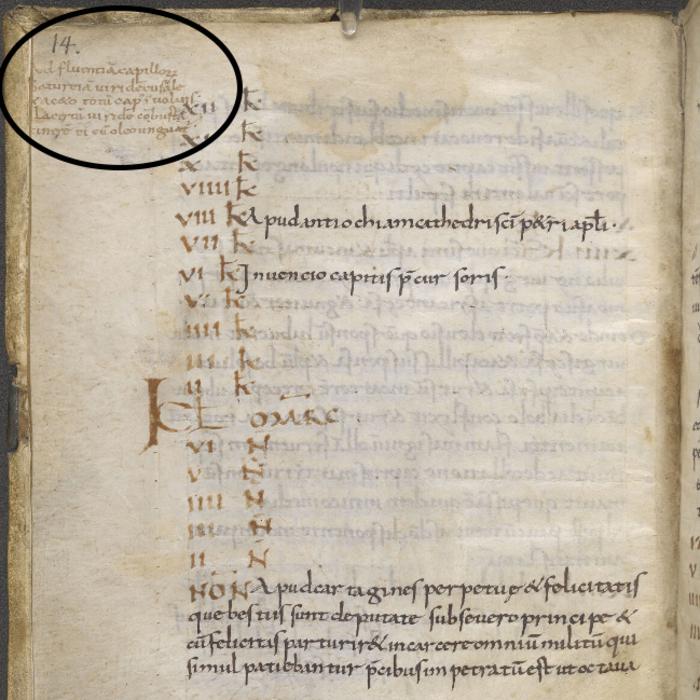 14.
Ad fluentiā capillorz
uiri
XII k̄
k̄
X k̄
VIIII k̄
VIII k̄ Apud antiochiam cathedri sc̄i p&ri apl̄i ·
VII k̄
VI k̄ Inuencio capitis p̄cur soris ·
V k̄
IIII k̄
III k̄
II k̄
KL MARC
VI N
V N
IIII N
III N
II N
NON Apud cartagines perpetuę & felicitatis
que bestiis sunt deputate sub seuero principe &
cū felicitis parturir& in carcere omniū militū qui
simul patiebantur p̄cibus impetratū est ut octaua